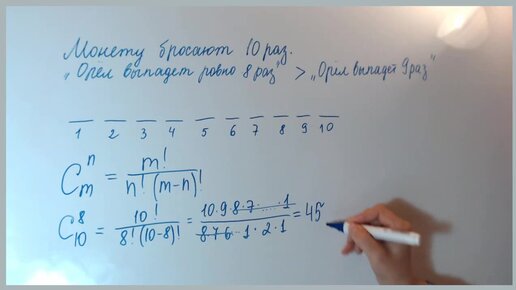 Монету бросают 10 раз.
„Орёл выпадет ровно 8 раз" > „Орёл выпадет 9 раз"
1 2 3 4 5 6 7 8 9 10
C_m^n = m! / n! (m-n)!
C_10^8 = 10! / 8! (10-8)! = 10·9·8·7·...·1 / 8·7·6·...·1·2·1 = 45